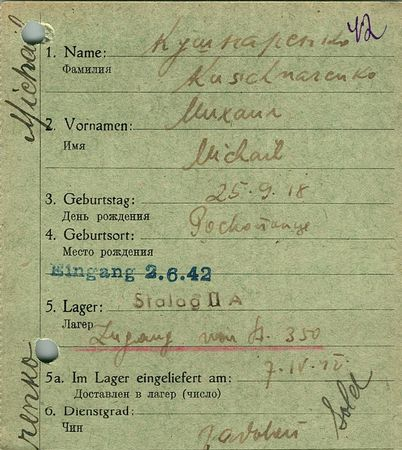 42
1. Name: Кушнаренко
Фамилия
Kuschnarenko
2. Vornamen: Михаил
Имя
Michail
3. Geburtstag: 25.9.18
День рождения
4. Geburtsort:
Место рождения
Eingang 2.6.42
5. Lager: Stalag II A
Лагерь
Zugang von St. 350
5a. Im Lager eingeliefert am: 7.IV.42
Доставлен в лагерь (число)
6. Dienstgrad: рядовой
Чин
Sold